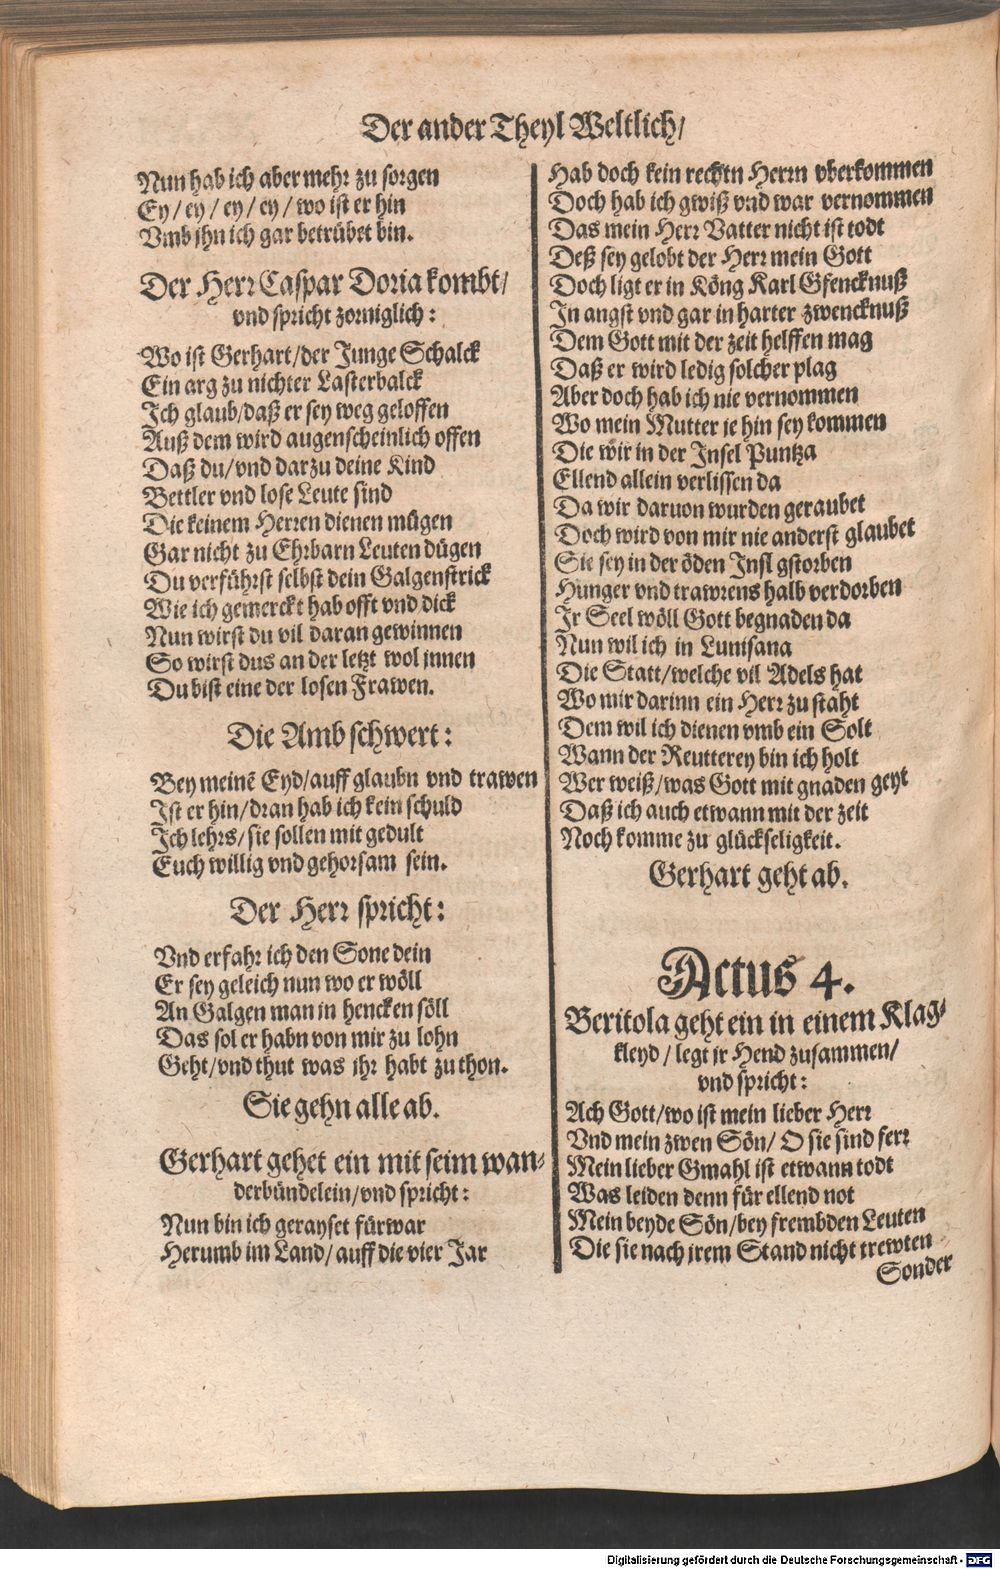 Der ander Theyl Weltlich/
Nun hab ich aber mehr zu sorgen
Ey/ ey/ ey/ ey/ wo ist er hin
Vmb ihn ich gar betrübet bin.
Der Herr Caspar Doria kombt/
vnd spricht zorniglich:
Wo ist Gerhart/der Junge Schalck
Ein arg zu nichter Lasterbalck
Ich glaub/daß er sey weg geloffen
Auß dem wird augenscheinlich offen
Daß du/vnd darzu deine Kind
Bettler vnd lose Leute sind
Die keinem Herren dienen mügen
Gar nicht zu Ehrbarn Leuten dügen
Du verführst selbst dein Galgenstrick
Wie ich gemerckt hab offt vnd dick
Nun wirst du vil daran gewinnen
So wirst dus an der letzt wol jnnen
Du bist eine der losen Frawen.
Die Amb schwert:
Bey meinẽ Eyd/auff glaubn vnd trawen
Ist er hin/dran hab ich kein schuld
Ich lehrs/sie sollen mit gedult
Euch willig vnd gehorsam sein.
Der Herr spricht:
Vnd erfahr ich den Sone dein
Er sey geleich nun wo er wöll
An Galgen man jn hencken söll
Das sol er habn von mir zu lohn
Geht/vnd thut was ihr habt zu thon.
Sie gehn alle ab.
Gerhart gehet ein mit seim wan-
derbündelein/vnd spricht:
Nun bin ich gerayset fürwar
Herumb im Land/auff die vier Jar
Hab doch kein rechtn Herrn vberkommen
Doch hab ich gwiß vnd war vernommen
Das mein Herr Vatter nicht ist todt
Deß sey gelobt der Herr mein Gott
Doch ligt er in Köng Karl Gfencknuß
In angst vnd gar in harter zwencknuß
Dem Gott mit der zeit helffen mag
Daß er wird ledig solcher plag
Aber doch hab ich nie vernommen
Wo mein Mutter je hin sey kommen
Die wir in der Insel Puntza
Ellend allein verlissen da
Da wir daruon wurden geraubet
Doch wird von mir nie anderst glaubet
Sie sey in der öden Insl gstorben
Hunger vnd trawrens halb verdorben
Ir Seel wöll Gott begnaden da
Nun wil ich in Lunisana
Die Statt/welche vil Adels hat
Wo mir darinn ein Herr zu staht
Dem wil ich dienen vmb ein Solt
Wann der Reutterey bin ich holt
Wer weiß/was Gott mit gnaden geyt
Daß ich auch etwann mit der zeit
Noch komme zu glückseligkeit.
Gerhart geht ab.
Actus 4.
Beritola geht ein in einem Klag-
kleyd/ legt jr Hend zusammen/
vnd spricht:
Ach Gott/wo ist mein lieber Herr
Vnd mein zwen Sön/ O sie sind ferr
Mein lieber Gmahl ist etwann todt
Was leiden denn für ellend not
Mein beyde Sön/bey frembden Leuten
Die sie nach jrem Stand nicht trewten
Sonder
Digitalisierung gefördert durch die Deutsche Forschungsgemeinschaft - DFG